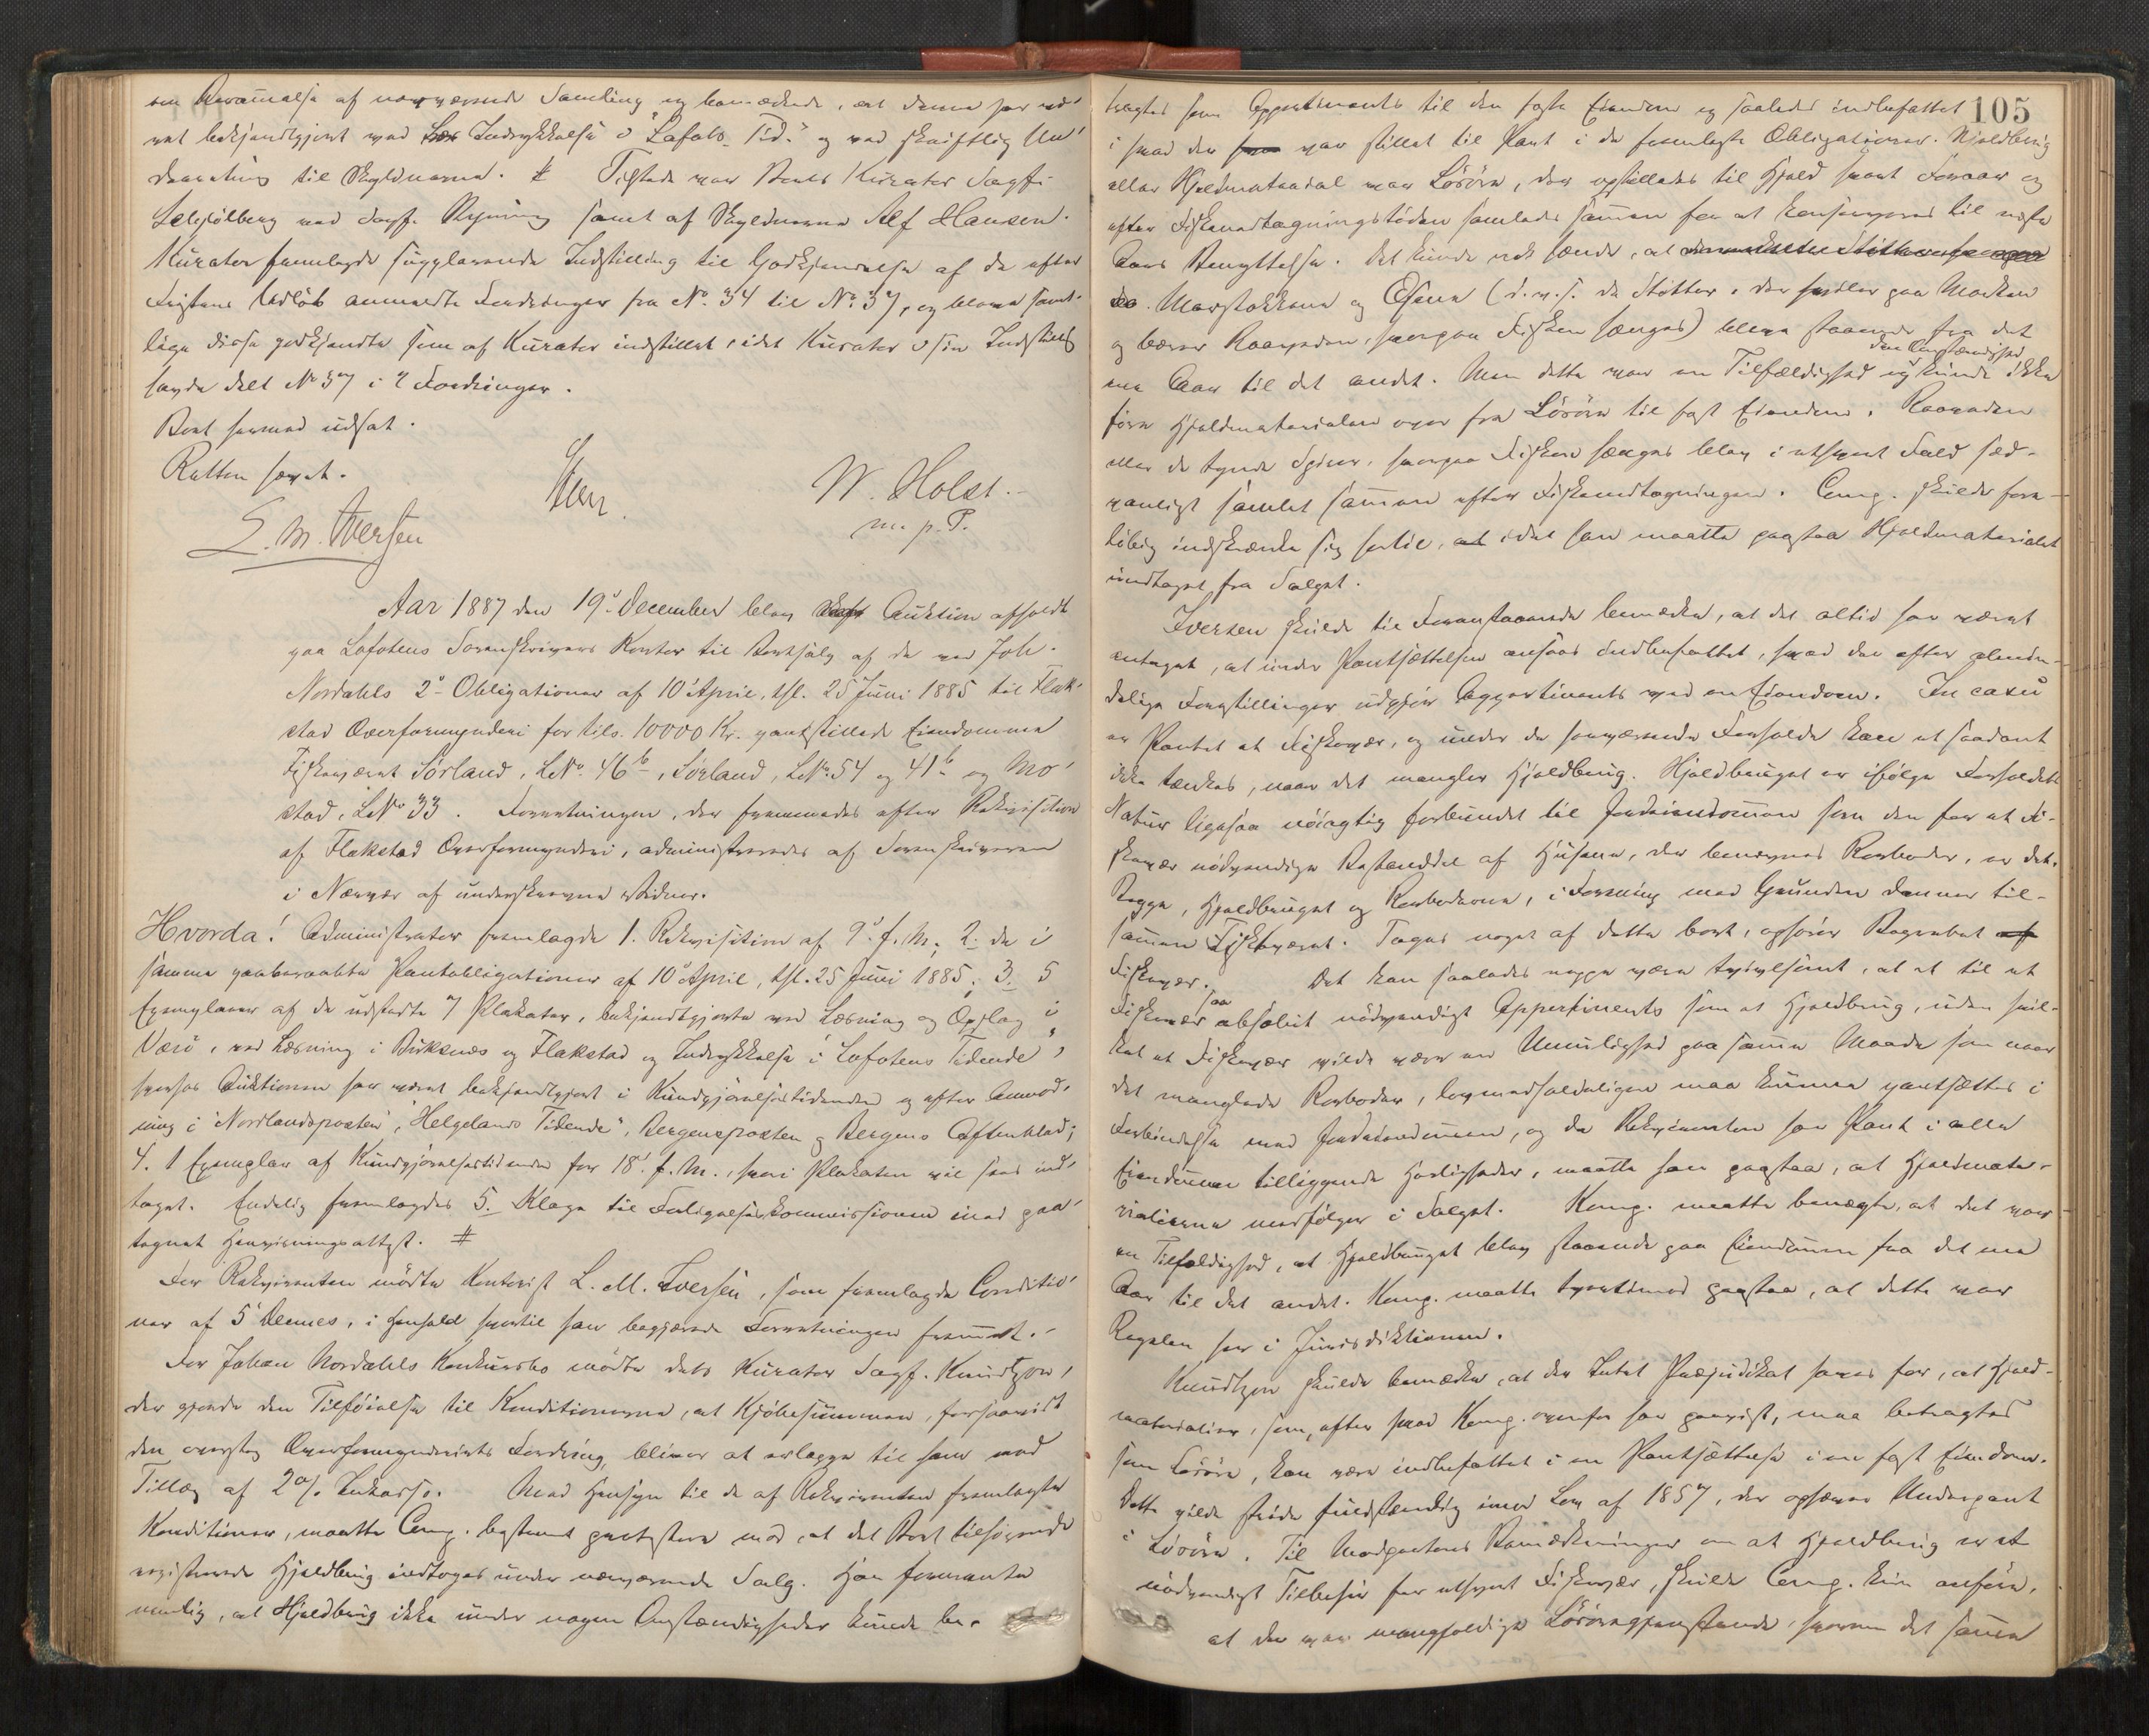 om Berammelse af nærværende Samling og bemærkede, at denne har væ-
ret bekjendtgjort ved Indrykkelse i "Lofot. Tid." og ved skriftlig Un-
derretning til Skyldneren. # Tilstede var Boets Kurator Sagf.
ved Sagf. Rynning samt af Skyldnerne Alf Hansen.
Kurator fremlagde supplerende Indstilling til Godkjendelse af de efter
Fristens Udløb anmeldte Fordringer fra No. 34 til No. 37, og bleve samt-
lige disse godkjendte som af Kurator indstillet, idet Kurator i sin Indstilling
havde delt No 37 i 2 Fordringer.
Boet hermed udsat.
Retten hævet.
W. Holst.
m. p. P.
L. M. Iversen
Aar 1887 den 19. December blev Auktion afholdt
paa Lofotens Sorenskrivers Kontor til Bortsalg af de ved Joh.
Nordahls 2de Obligationer af 10 April, thl. 25 Juni 1885 til Flak-
stad Overformynderi for tils. 10000 Kr. pantstillede Eiendomme
Fiskeværet Sørland, LNo. 46b, Sørland, LNo. 54 og 41b og Mo-
stad, LNo 33. Forretningen, der fremmedes efter Rekvisition
af Flakstad Overformynderi, administreredes af Sorenskriveren
i Nærvær af underskrevne Vidner.
Hvorda! Administrator fremlagde 1. Rekvisition af 9. f. M.; 2. de i
samme paaberaabte Pantobligationer af 10 April, thl. 25 Juni 1885; 3. 5
Exemplarer af de udstedte 7 Plakater, bekjendtgjorte ved Læsning og Opslag i
Værø, ved Læsning i Buksnæs og Flakstad og Indrykkelse i "Lofotens Tidende",
hvorhos Auktionen har været bekjendtgjort i Kundgjørelsestidenden og efter Anmod-
ning i "Nordlandsposten", "Helgelands Tidende", Bergensposten og Bergens Aftenblad;
4. 1 Exemplar af Kundgjørelsestidende for 18. f. M., hvori Plakaten vil sees ind-
taget. Endelig fremlagdes 5. Klage til Forligelseskommissionen med paa-
tegnet Henvisningsattest. #
For Rekvirenten mødte Kontorist L. M. Iversen, som fremlagde Conditio-
ner af 5 dennes, i Henhold hvortil han begjærede Forretningen fremmet.
For Johan Nordahls Konkursbo mødte dets Kurator Sagf. Knudtzon,
der gjorde den Tilføielse til Konditionerne, at Kjøbesummen, forsaavidt
den oversteg Overformynderiets Fordring, bliver at erlægge til ham med
Tillæg af 2% Inkasso. Med Hensyn til de af Rekvirenten fremlagte
Konditioner, maatte Comp. bestemt protestere mod, at det Boet tilhørende
registrerede Hjeldbrug indtoges under nærværende Salg. Han formente
nemlig, at Hjeldbrug ikke under nogen Omstændigheder kunde be-
105
tragtes som Appertinents til den faste Eiendom og saaledes indbefattet
i hvad der var stillet til Pant i de fremlagte Obligationer. Hjeldbrug
eller Hjeldmateriale var Løsøre, der opstilledes til Hjeld hvert Foraar og
efter Fiskenedtagningstiden samledes sammen for at henlægges til neste
Aars Benyttelse. Det kunde nok hænde, at
do. Marstokkene og Esene (d. v. s. de Støtter, der hviler paa Marken
og bærer Raaerne, hvorpaa Fisken hænges) bleve staaende fra det
ene Aar til det andet. Men dette var en Tilfældighed og den Omstændighed kunde ikke
føre Hjeldmaterialene over fra Løsøre til fast Eiendom. Raaerne
eller de tynde Spirer, hvorpaa Fisken hænges blev i ethvert Fald sæd-
vanligt samlet sammen efter Fiskenedtagningen. Comp. skulde fore-
løbig indskrænke sig hertil, idet han maatte paastaa Hjeldmaterialet
undtaget fra Salget.
Iversen skulde til Foranstaaende bemærke, at det altid har været
antaget, at under Pantsættelsen ansaaes indbefattet, hvad der efter almin-
delige Forestillinger udgjør Appertinents ved en Eiendom. In casu
er Pantet et Fiskevær, og under de herværende Forholde kan et saadant
ikke tænkes, naar det mangler Hjeldbrug. Hjeldbruget er ifølge Forholdets
Natur ligesaa nøiagtig forbundet til Jordeiendommen som den for et Fi-
skevær nødvendige Bestanddel af Husene, der benævnes Rorboder, er det.
Begge, Hjeldbruget og Rorboderne, i Forening med Grunden danner til-
sammen Fiskeværet. Tages noget af dette bort, ophører Begrebet
Fiskevær. Det kan saaledes neppe være tvivlsomt, at et til et
Fiskevær saa absolut nødvendigt Appertinents som et Hjeldbrug, uden hvil-
ket et Fiskevær vilde være en Umulighed paa samme Maade som naar
det manglede Rorboder, lovmedholdeligen maa kunne pantsættes i
Forbindelse med Jordeiendommen, og da Rekvirenten har Pant i alle
Eiendommen tilliggende Herligheder, maatte han paastaa, at Hjeldmate-
rialierne medfølger i Salget. Komp. maatte benægte, at det var
en Tilfældighed, at Hjeldbruget blev staaende paa Eiendommen fra det ene
Aar til det andet. Komp. maatte tvertimod paastaa, at dette var
Regelen her i Jurisdiktionen.
Knudtzon skulde bemærke, at der Intet Præjudikat haves for, at Hjeld-
materialier, som, efter hvad Komp. ovenfor har paavist, maa betragtes
som Løsøre, kan være indbefattet i en Pantsættelse i en fast Eiendom.
Dette vilde stride fuldstændig imod Lov af 1857, der ophæver Underpant
i Løsøre. Til Modpartens Bemærkninger om at Hjeldbrug er et
nødvendigt Tilbehør for ethvert Fiskevær, skulde Comp. kun anføre,
at der var mangfoldige Løsøregjenstande, hvorom det samme